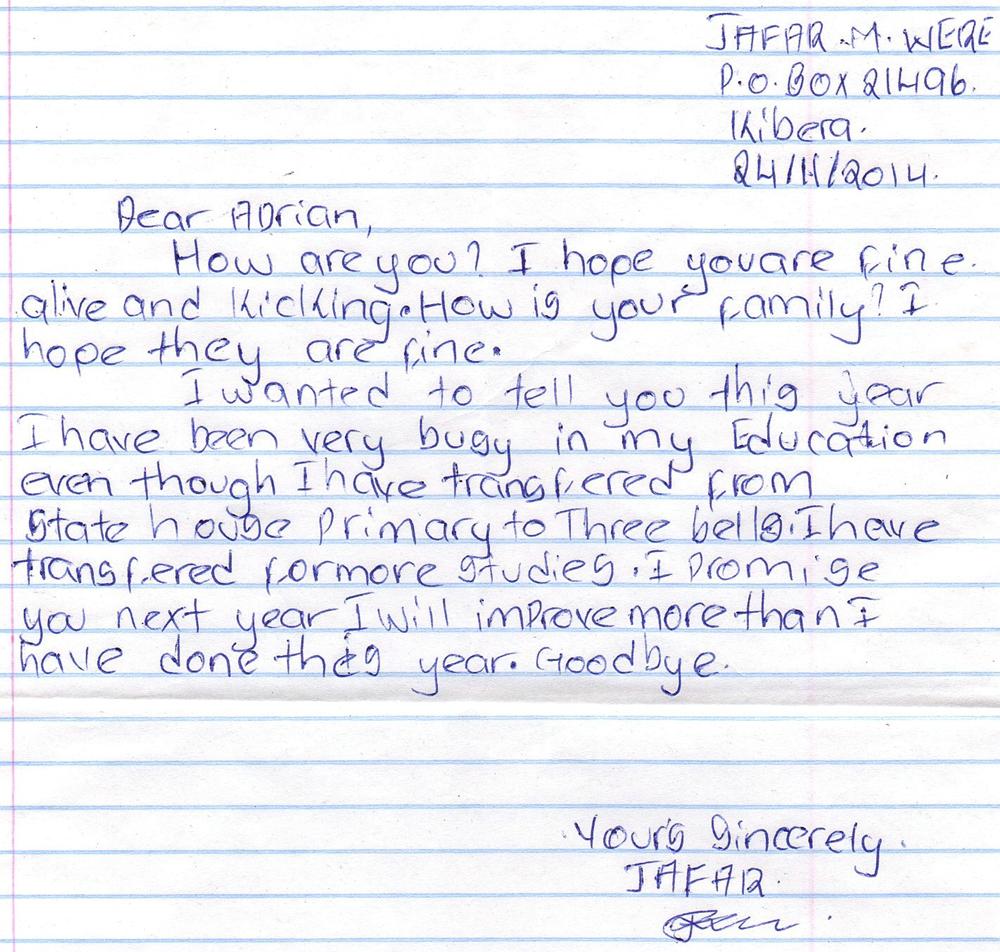 JAFAR .M. WERE
P.O. BOX 21496.
Kibera.
24/11/2014.
Dear ADrian,
How are you? I hope you are fine.
alive and kicking. How is your family? I
hope they are fine.
I wanted to tell you this year
I have been very busy in my Education
even though I have transfered from
State house Primary to Three bells. I have
transfered for more studies. I promise
you next year I will improve more than I
have done this year. Goodbye.
Yours Sincerely.
JAFAR.